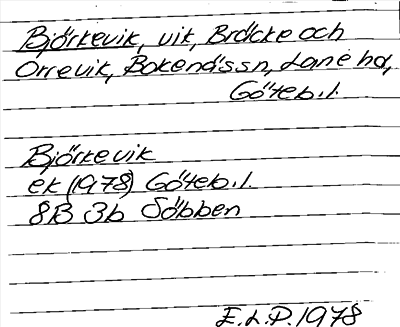 Björkevik, vik, Bräcke och
Orrevik, Bokenässn, Lane hd,
Göteb.l.
Björkevik
ek (1978) Göteb.l.
8B 3b Söbben
E.L.P. 1978